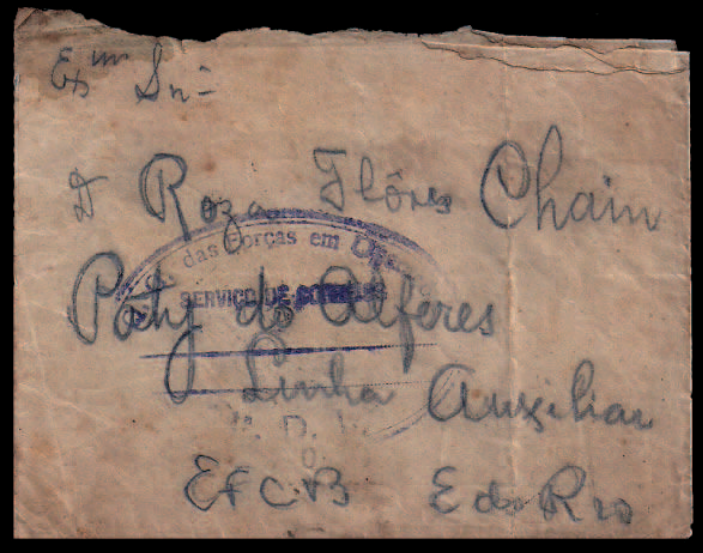 Exmª Snrª
D Roza Flôres Chain
das Forças em
SERVIÇO DE CORREIOS
Paty do Alferes
Linha Auxiliar
EFCB E do Rio